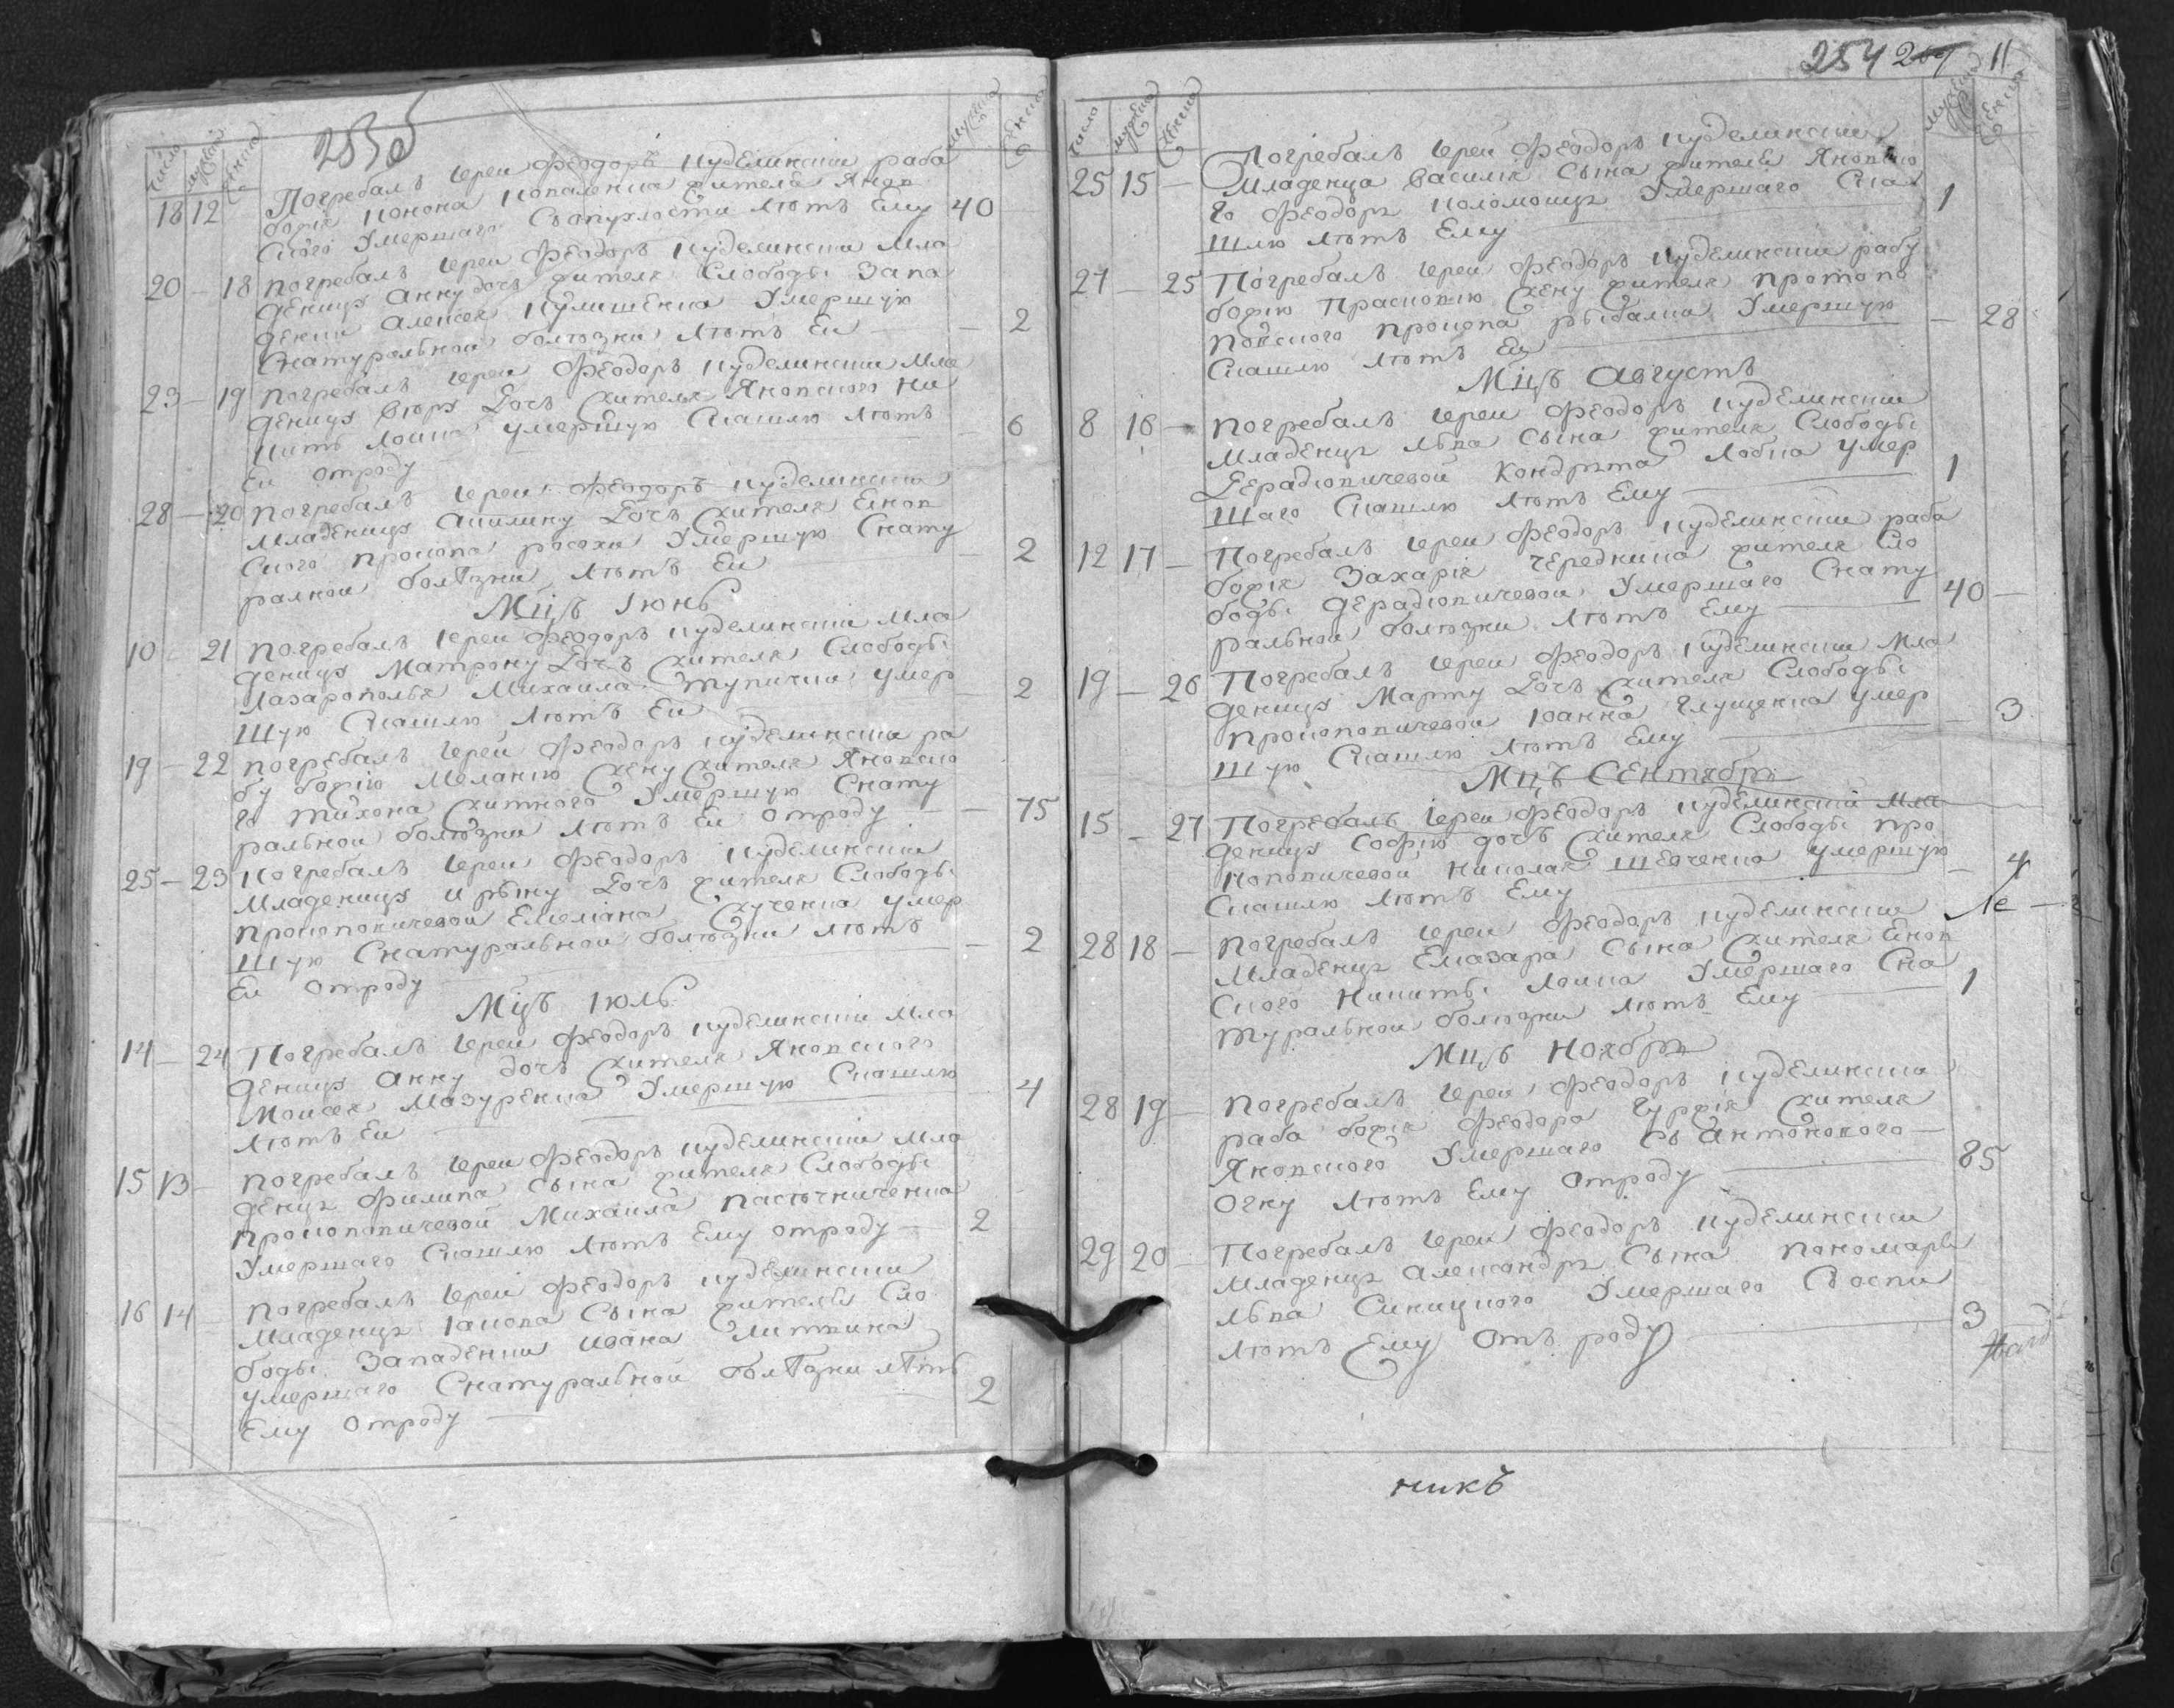 253б
число мужеска женска мужска женска
18 12 Погребалъ иереи Феодоръ кудѣлинскии раба
божія конона коваленка жителя Яков
ского Умершаго Съ опухлости лѣтъ Ему 40
20 – 18 погребалъ иереи Феодоръ кудѣлинскии мла
деницу Анну дочь жителя Слободы Запа
денки Алексея кулишенка Умершую
Снатуральнои болѣзни лѣтъ Еи – 2
23 – 19 погребалъ иереи Феодоръ кудѣлинскии мла
деницу дочь жителя Яковского Ни
киты умершую Скашлю лѣтъ
Еи отроду 6
28 – 20 погребалъ иереи Феодоръ кудѣлинскии
младеницу Акилину дочь жителя Еков
ского прокопа росохи Умершую Снату
ралнои болѣзни лѣтъ Еи – 2
Мцъ Іюнь
10 21 погребалъ иереи Феодоръ кудѣлинскии мла
деницу Матрону дочь жителя Слободы
Лазарополья Михаила тупички умер
шую Скашлю лѣтъ Еи – 2
19 – 22 погребалъ иереи Феодоръ кудѣлинскии ра
бу божію Меланію жену жителя Яковско
го тихона житного Умершую Снату
ральнои болѣзни лѣтъ Еи отроду – 75
25 – 23 погребалъ иереи Феодоръ кудѣлинскии
младеницу Ирѣну дочь жителя Слободы
прокоповичевои Емеляна умер
шую Снатуральнои болѣзни лѣтъ
Еи отроду – 2
Мцъ Іюль
14 – 24 Погребалъ иереи Феодоръ кудѣлинскии мла
деницу Анну дочь жителя Яковского
Моисея Мазуренка Умершую Скашлю
лѣтъ Еи 4
15 13 – погребалъ иереи Феодоръ кудѣлинскии мла
денця Филипа сына жителя Слободы
прокоповичевои Михаила пасѣчниченка
Умершаго Скашлю лѣтъ Ему отроду – 2
16 14 – погребалъ иереи Феодоръ кудѣлинскии
младенця Іакова Сына жителя Сло
боды Западенки ивана литвина
умершаго Снатуральнои болѣзни лѣтъ
Ему отроду 2
254 269 11
число мужеска женска мужеска женска
25 15 – Погребалъ иереи Феодоръ кудѣлинскии
Младенца василія Сына жителя Яковско
го Феодора коломойця Умершаго Ска
шлю лѣтъ Ему 1
27 – 25 Погребалъ иереи Феодоръ кудѣлинскии рабу
божію Прасковію жену жителя протопо
повского прокопа рыбалка Умершую
Скашлю лѣтъ Еи – 28
Мцъ Августъ
8 16 – погребалъ иереи Феодоръ кудѣлинскии
младенця лва Сына жителя Слободы
Герадіовичевои Кондрата лобка умер
шаго Скашлю лѣтъ Ему 1
12 17 – Погребалъ иереи Феодоръ кудѣлинскии раба
божія Захарія чередника жителя Сло
боды Герадіовичевои Умершаго Снату
ральнои болѣзни лѣтъ Ему 40 –
19 – 26 Погребалъ иереи Феодоръ кудѣлинскии мла
деницу Марту дочь жителя Слободы
прокоповичевои Іоанна глущенка умер
шую Скашлю лѣтъ Ему – 3
Мцъ Сентябрь
15 – 27 Погребалъ иереи Феодоръ кудѣлинскии мла
деницу Софію дочь жителя Слободы про
коповичевои Николая шевченка умершую
Скашлю лѣтъ Ему – 4
28 18 – погребалъ иереи Феодоръ кудѣлинскии
младенця Елазара Сына жителя Еков
ского Никиты Умершаго Сна
туральнои болѣзни лѣтъ Ему 1
Мцъ Ноябрь
28 19 – погребалъ иереи Феодоръ кудѣлинскии
раба божія Феодора жителя
Яковского Умершаго Съ Антонового
Огню лѣтъ Ему отроду 85
29 20 – Погребалъ иереи Феодоръ кудѣлинскии
младенця Александра Сына пономаря
лва Синицкого Умершаго Съ оспи
лѣтъ Ему отъ роду 3
никъ